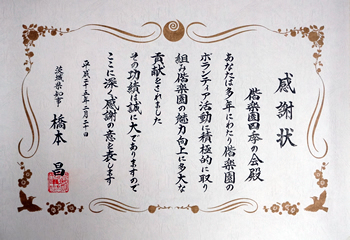 感謝状
偕楽園四季の会殿
あなたは多年にわたり偕楽園の
ボランティア活動に積極的に取り
組み偕楽園の魅力向上に多大な
貢献をされました
その功績は誠に大でありますので
ここに深く感謝の意を表します
平成二十五年二月二十日
茨城県知事 橋本 昌